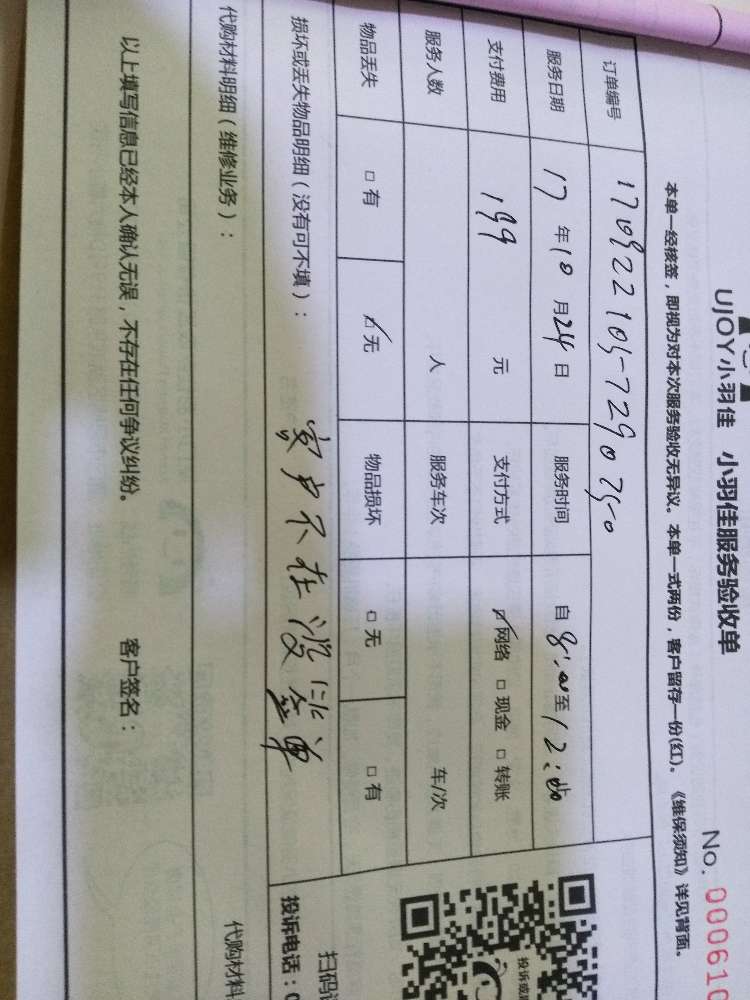 UJOY小羽佳 小羽佳服务验收单
No. 000610
本单一经核签，即视为对本次服务验收无异议。本单一式两份，客户留存一份(红)。《维保须知》详见背面。
订单编号 170922105-7290250
服务日期 17 年 10 月 24 日 服务时间 自 8:00 至 12:00
支付费用 199 元 支付方式 ☑网络 □现金 □转账
服务人数 人 服务车次 车/次
物品丢失 □有 ☑无 物品损坏 □无 □有
损坏或丢失物品明细（没有可不填）：
客户不在没签单
代购材料明细（维修业务）：
代购材料
以上填写信息已经本人确认无误，不存在任何争议纠纷。 客户签名：
投诉或
扫码
投诉电话：0